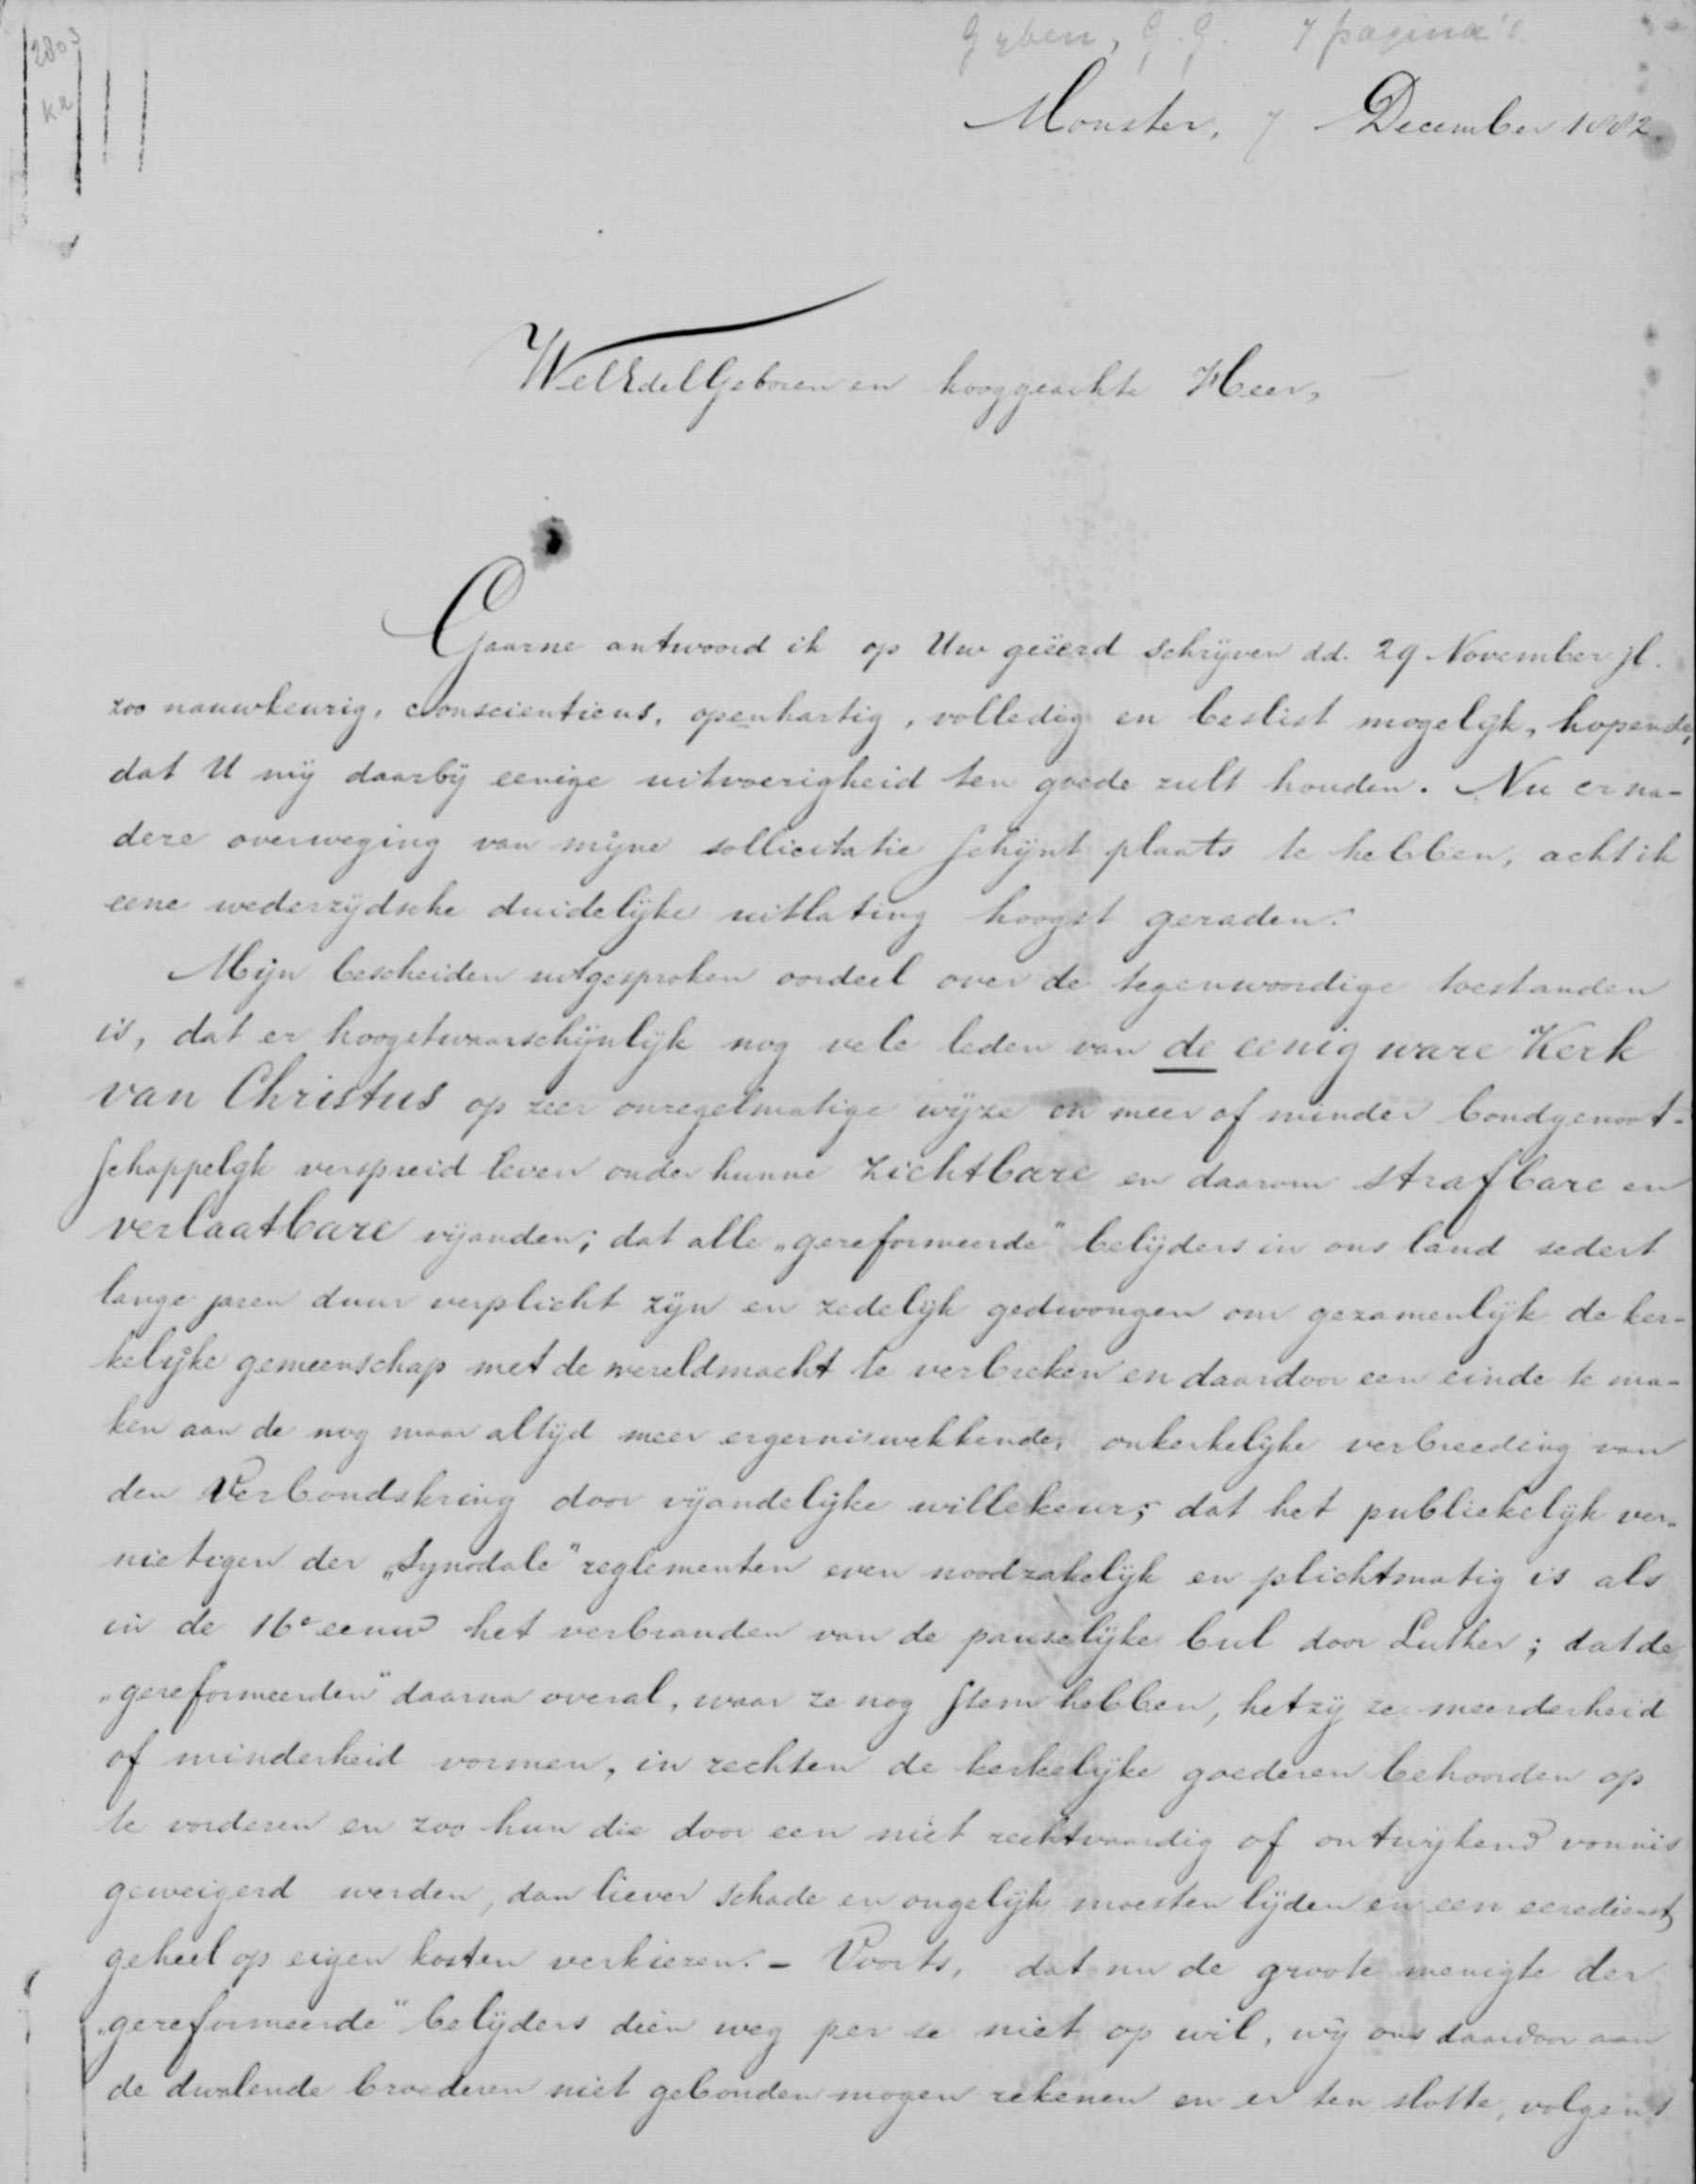 Gyben, G. G. 7 pagina's
2803
KA
Monster, 7 December 1882.
WelEdelGeboren en hooggeachte Heer,
Gaarne antwoord ik op Uw geëerd schrijven dd. 29 November jl.
zoo nauwkeurig, consciëntieus, openhartig, volledig en beslist mogelijk, hopende,
dat U mij daarbij eenige uitvoerigheid ten goede zult houden. Nu er na-
dere overweging van mijne sollicitatie schijnt plaats te hebben, acht ik
eene wederzijdsche duidelijke uitlating hoogst geraden.
Mijn bescheiden uitgesproken oordeel over de tegenwoordige toestanden
is, dat er hoogstwaarschijnlijk nog vele leden van de eenig ware Kerk
van Christus op zeer onregelmatige wijze en meer of minder bondgenoot-
schappelijk verspreid leven onder hunne zichtbare en daarom strafbare en
verlaatbare vijanden; dat alle „gereformeerde" belijders in ons land sedert
lange jaren duur verplicht zijn en zedelijk gedwongen om gezamenlijk de ker-
kelijke gemeenschap met de wereldmacht te verbreken en daardoor een einde te ma-
ken aan de nog maar altijd meer ergerniswekkende, onkerkelijke verbreeding van
den Verbondskring door vijandelijke willekeur; dat het publiekelijk ver-
nietigen der „Synodale" reglementen even noodzakelijk en plichtmatig is als
in de 16e eeuw het verbranden van de pauselijke bul door Luther; dat de
„gereformeerden" daarna overal, waar ze nog stem hebben, hetzij ze meerderheid
of minderheid vormen, in rechten de kerkelijke goederen behoorden op
te vorderen en zoo hun die door een niet rechtvaardig of ontwijkend vonnis
geweigerd werden, dan liever schade en ongelijk moesten lijden en een eeredienst
geheel op eigen kosten verkiezen. - Voorts, dat nu de groote menigte der
„gereformeerde" belijders dien weg per se niet op wil, wij ons daardoor aan
de dwalende broederen niet gebonden mogen rekenen en er ten slotte, volgens